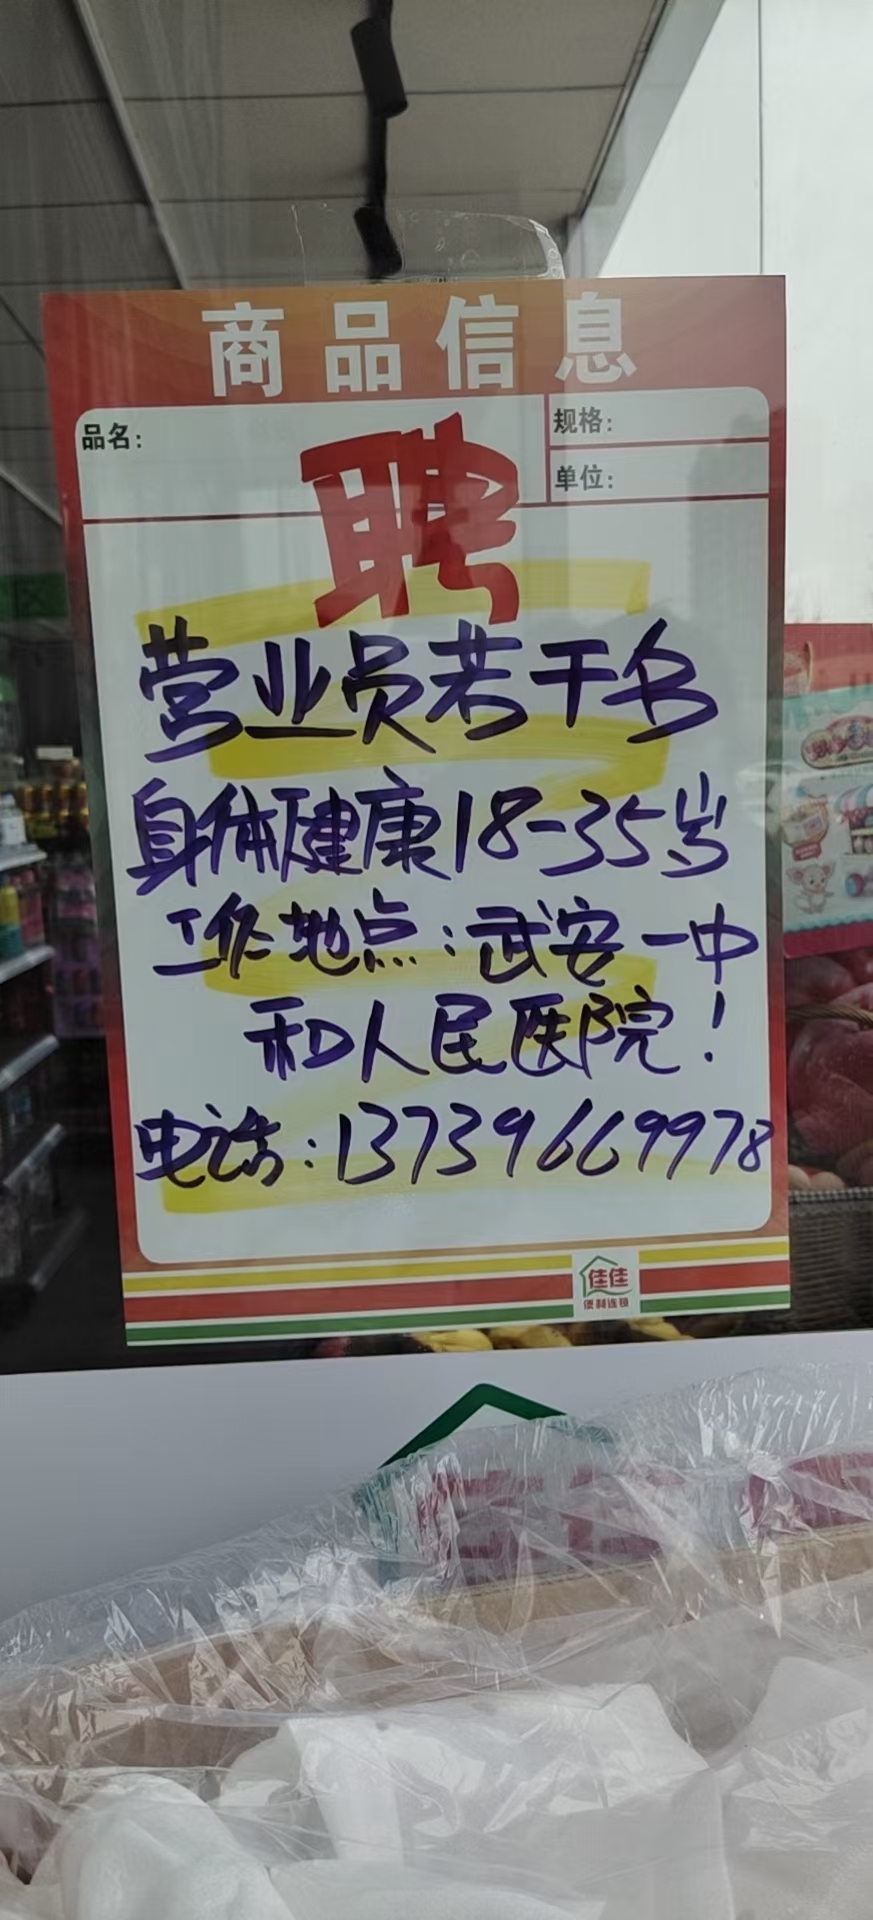 商品信息
品名：
规格：
单位：
聘
营业员若干名
身体健康18-35岁
工作地点：武安一中
和人民医院！
电话：13739669978
佳佳
便利连锁